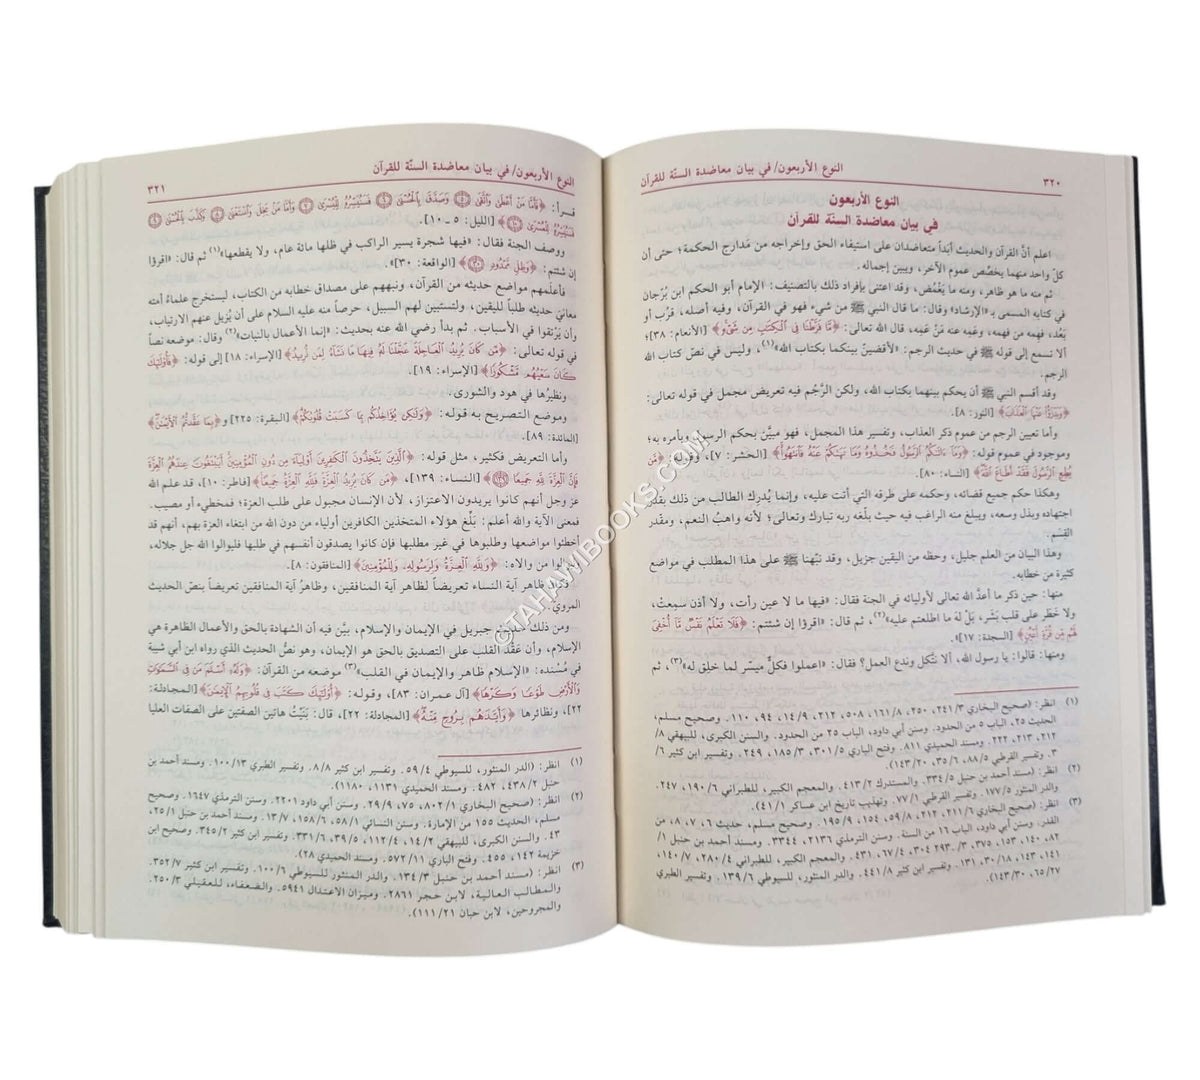 النوع الأربعون/ في بيان معاضدة السنّة للقرآن
٣٢٠
النوع الأربعون
في بيان معاضدة السنّة للقرآن
اعلم أنَّ القرآن والحديث أبَداً متعاضدان على استيفاء الحق وإخراجه من مَدارج الحكمة؛ حتى أن
كلّ واحد منهما يخصِّص عموم الآخر، ويبين إجماله.
ثم منه ما هو ظاهر، ومنه ما يَغْمُض، وقد اعتنى بإفراد ذلك بالتصنيف: الإمام أبو الحكم ابن بُرّجان
في كتابه المسمى بـ «الإرشاد» وقال: ما قال النبي ﷺ من شيء فهو في القرآن، وفيه أصله، قرُب أو
بَعُد، فهِمه من فهمه، وعَمِه عنه مَنْ عَمِه، قال الله تعالى: ﴿مَّا فَرَّطْنَا فِي الْكِتَابِ مِن شَيْءٍ﴾ [الأنعام: ٣٨]؛
ألا تسمع إلى قوله ﷺ في حديث الرجم: «لأقضينّ بينكما بكتاب الله»(١)، وليس في نصّ كتاب الله
الرجم.
وقد أقسم النبي ﷺ أن يحكم بينهما بكتاب الله، ولكن الرَّجْم فيه تعريض مجمل في قوله تعالى:
﴿وَيَدْرَؤُا عَنْهَا الْعَذَابَ﴾ [النور: ٨].
وأما تعيين الرجم من عموم ذكر العذاب، وتفسير هذا المجمل، فهو مبيَّن بحكم الرسول وبأمره به؛
وموجود في عموم قوله: ﴿وَمَا ءَاتَىٰكُمُ الرَّسُولُ فَخُذُوهُ وَمَا نَهَىٰكُمْ عَنْهُ فَانتَهُوا﴾ [الحشر: ٧]، وقوله: ﴿مَّن
يُطِعِ الرَّسُولَ فَقَدْ أَطَاعَ اللَّهَ﴾ [النساء: ٨٠].
وهكذا حكم جميع قضائه، وحكمه على طرقه التي أتت عليه، وإنما يُدرك الطالب من ذلك بقدر
اجتهاده وبذل وسعه، ويبلغ منه الراغب فيه حيث بلّغه ربه تبارك وتعالى؛ لأنه واهبُ النعم، ومقدّر
القِسَم.
وهذا البيان من العلم جليل، وحظه من اليقين جزيل، وقد نبّهنا ﷺ على هذا المطلب في مواضع
كثيرة من خطابه.
منها: حين ذكر ما أعدَّ الله تعالى لأوليائه في الجنة فقال: «فيها ما لا عين رأت، ولا أذن سمِعتْ،
ولا خَطَر على قلب بَشَر، بَلْهَ ما اطلعتم عليه»(٢)، ثم قال: «اقرؤا إن شئتم: ﴿فَلَا تَعْلَمُ نَفْسٌ مَّا أُخْفِيَ
لَهُم مِّن قُرَّةِ أَعْيُنٍ﴾ [السجدة: ١٧]».
ومنها: قالوا: يا رسول الله، ألا نتَّكل وندع العمل؟ فقال: «اعملوا فكلٌّ ميسّر لما خلِق له»(٣)، ثم
(١) انظر: (صحيح البخاري ٢٤١/٣، ٢٥٠، ١٦١/٨، ٥٠٨، ٢١٢، ١٤/٩، ٩٤، ١١٠. وصحيح مسلم،
الحديث ٢٥، الباب ٥ من الحدود. وسنن أبي داود، الباب ٢٥ من الحدود. والسنن الكبرى، للبيهقي ٨/
٢١٢، ٢١٣، ٢٢٢. ومسند الحميدي ٨١١. وفتح الباري ٣٠١/٥، ١٨٥/٣، ٢٤٩. وتفسير ابن كثير ٦/
٣. وتفسير القرطبي ٨٨/٥، ١٤٣/٢٠).
(٢) انظر: (مسند أحمد بن حنبل ٣٣٤/٥. والمستدرك ٤١٣/٢. والمعجم الكبير، للطبراني ١٩٠/٦، ٢٤٧.
والدر المنثور ١٧٧/٥. تفسير القرطبي ٧٧/١. وتهذيب تاريخ ابن عساكر ٤١/١).
(٣) انظر: (صحيح البخاري ٢١١/٦، ٢١٢، ٥٩/٨، ١٥٤، ١٩٥/٩. وصحيح مسلم، حديث ٦، ٧، ٨، من
القدر. وسنن أبي داود، الباب ١٦ من السنة. وسنن الترمذي ٢١٣٦، ٣٣٤٤. ومسند أحمد بن حنبل ١/
٨٢، ١٤٠، ١٥٣، ٣٧٥، ٢٩٣/٣، ٣٠٤، ٦٧/٤، ٤٣١. والمعجم الكبير، للطبراني ٢٨٠/٤، ١٤٠/٧،
١٤١، ١٤٣، ٣٠/١٨، ١٣١. وتفسير ابن كثير ٤٤١/٨. والدر المنثور، للسيوطي ١٣٩/٦. وتفسير الطبري
٦٥/٢٧، ١٤٣/٣٠).
النوع الأربعون/ في بيان معاضدة السنّة للقرآن
٣٢١
قرأ: ﴿فَأَمَّا مَنْ أَعْطَىٰ وَاتَّقَىٰ ٥ وَصَدَّقَ بِالْحُسْنَىٰ ٦ فَسَنُيَسِّرُهُ لِلْيُسْرَىٰ ٧ وَأَمَّا مَنْ بَخِلَ وَاسْتَغْنَىٰ ٨ وَكَذَّبَ بِالْحُسْنَىٰ ٩
فَسَنُيَسِّرُهُ لِلْعُسْرَىٰ ١٠﴾ [الليل: ٥ ـ ١٠].
ووصف الجنة فقال: «فيها شجرة يسير الراكب في ظلها مائة عام، ولا يقطعها»(١) ثم قال: «اقرؤا
إن شئتم: ﴿وَظِلٍّ مَّمْدُودٍ ٣٠﴾ [الواقعة: ٣٠]».
فأعلَمهم مواضع حديثه من القرآن، ونبههم على مصداق خطابه من الكتاب، ليستخرج علماءُ أمته
معانيَ حديثه طلباً لليقين، ولتستبين لهم السبيل، حرصاً منه عليه السلام على أن يُزيل عنهم الارتياب،
وأن يرْتقوا في الأسباب. ثم بدأ رضي الله عنه بحديث: «إنما الأعمال بالنيات»(٢) وقال: موضعه نصاً
في قوله تعالى: ﴿مَّن كَانَ يُرِيدُ الْعَاجِلَةَ عَجَّلْنَا لَهُ فِيهَا مَا نَشَاءُ لِمَن نُّرِيدُ﴾ [الإسراء: ١٨] إلى قوله: ﴿فَأُولَٰئِكَ
كَانَ سَعْيُهُم مَّشْكُورًا﴾ [الإسراء: ١٩].
ونظيرُها في هود والشورى.
وموضع التصريح به قوله: ﴿وَلَٰكِن يُؤَاخِذُكُم بِمَا كَسَبَتْ قُلُوبُكُمْ﴾ [البقرة: ٢٢٥] و﴿بِمَا عَقَّدتُّمُ الْأَيْمَانَ﴾
[المائدة: ٨٩].
وأما التعريض فكثير، مثل قوله: ﴿الَّذِينَ يَتَّخِذُونَ الْكَافِرِينَ أَوْلِيَاءَ مِن دُونِ الْمُؤْمِنِينَ أَيَبْتَغُونَ عِندَهُمُ الْعِزَّةَ
فَإِنَّ الْعِزَّةَ لِلَّهِ جَمِيعًا ١٣٩﴾ [النساء: ١٣٩]، ﴿مَن كَانَ يُرِيدُ الْعِزَّةَ فَلِلَّهِ الْعِزَّةُ جَمِيعًا﴾ [فاطر: ١٠]، قد علم الله
عز وجل أنهم كانوا يريدون الاعتزاز، لأن الإنسان مجبول على طلب العزة؛ فمخطىء أو مصيب.
فمعنى الآية والله أعلم: بَلِّغ هؤلاء المتخذين الكافرين أولياء من دون الله من ابتغاء العزة بهم، أنهم قد
أخطئوا مواضعها وطلبوها في غير مطلبها فإن كانوا يصدقون أنفسهم في طلبها فليوالوا الله جل جلاله،
وليوالوا من والاه: ﴿وَلِلَّهِ الْعِزَّةُ وَلِرَسُولِهِ وَلِلْمُؤْمِنِينَ﴾ [المنافقون: ٨].
فكان ظاهر آية النساء تعريضاً لظاهر آية المنافقين، وظاهرُ آية المنافقين تعريضاً بنصّ الحديث
المرويّ.
ومن ذلك حديث جبريل في الإيمان والإسلام، بيَّن فيه أن الشهادة بالحق والأعمال الظاهرة هي
الإسلام، وأن عَقْد القلب على التصديق بالحق هو الإيمان، وهو نصُّ الحديث الذي رواه ابن أبي شيبة
في مُسْنده: «الإسلام ظاهر والإيمان في القلب»(٣) موضعه من القرآن: ﴿وَلَهُ أَسْلَمَ مَن فِي السَّمَاوَاتِ
وَالْأَرْضِ طَوْعًا وَكَرْهًا﴾ [آل عمران: ٨٣]، وقوله: ﴿أُولَٰئِكَ كَتَبَ فِي قُلُوبِهِمُ الْإِيمَانَ﴾ [المجادلة:
٢٢]، ونظائرها ﴿وَأَيَّدَهُم بِرُوحٍ مِّنْهُ﴾ [المجادلة: ٢٢]، قال: بَنَيْتُ هاتين الصفتين على الصفات العليا
(١) انظر: (الدر المنثور، للسيوطي ٥٩/٤. وتفسير ابن كثير ٨/٨. وتفسير الطبري ١٠٠/١٣. ومسند أحمد بن
حنبل ٤٣٨/٢، ٤٨٢. ومسند الحميدي ١١٣١، ١١٨٠).
(٢) انظر: (صحيح البخاري ٨٠٢/١، ٧٥، ٢٩/٩. وسنن أبي داود ٢٢٠١. وسنن الترمذي ١٦٤٧. وصحيح
مسلم، الحديث ١٥٥ من الإمارة. وسنن النسائي ٥٨/١، ١٥٨/٦، ١٣/٧. ومسند أحمد بن حنبل ٢٥/١،
٤٣. والسنن الكبرى، للبيهقي ١٤/٢، ١١٢/٤، ٣٩/٥، ٣٣١/٦. وتفسير ابن كثير ٣٤٥/٢. وصحيح ابن
خزيمة ١٤٢، ٤٥٥. وفتح الباري ٥٧٢/١١. ومسند الحميدي ٢٨).
(٣) انظر: (مسند أحمد بن حنبل ١٣٤/٣. والدر المنثور للسيوطي ١٠٠/٦. وتفسير ابن كثير ٣٥٢/٧.
والمطالب العالية، لابن حجر ٢٨٦١. وميزان الاعتدال ٥٩٤١. والضعفاء، للعقيلي ٢٥٠/٣.
والمجروحين، لابن حبان ١١١/٢١).
©TAHAWIBOOKS.COM